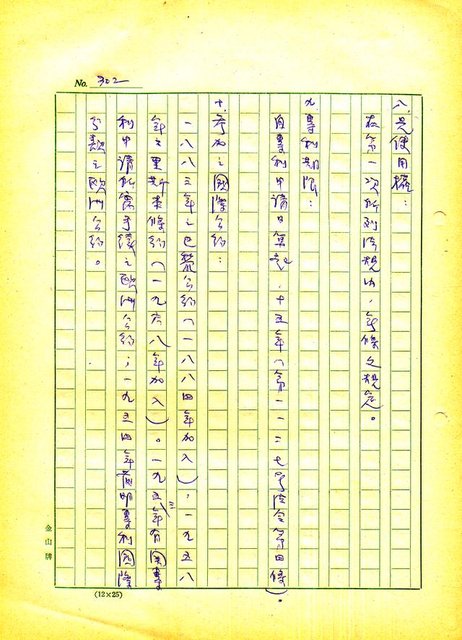 No. 322
八、先使用權：
在第一次所列法規內，無條文規定。
九、專利期限：
自專利申請日算起，十五年（第一一二七號法令第四條）。
十、參加之國際公約：
一八八三年之巴黎公約（一八八四年加入）；一九五八
年之里斯本條約（一九六八年加入）。一九五三年有關專
利申請所需手續之歐洲公約；一九五四年發明專利國際
分類之歐洲公約。
金山牌
(12×25)